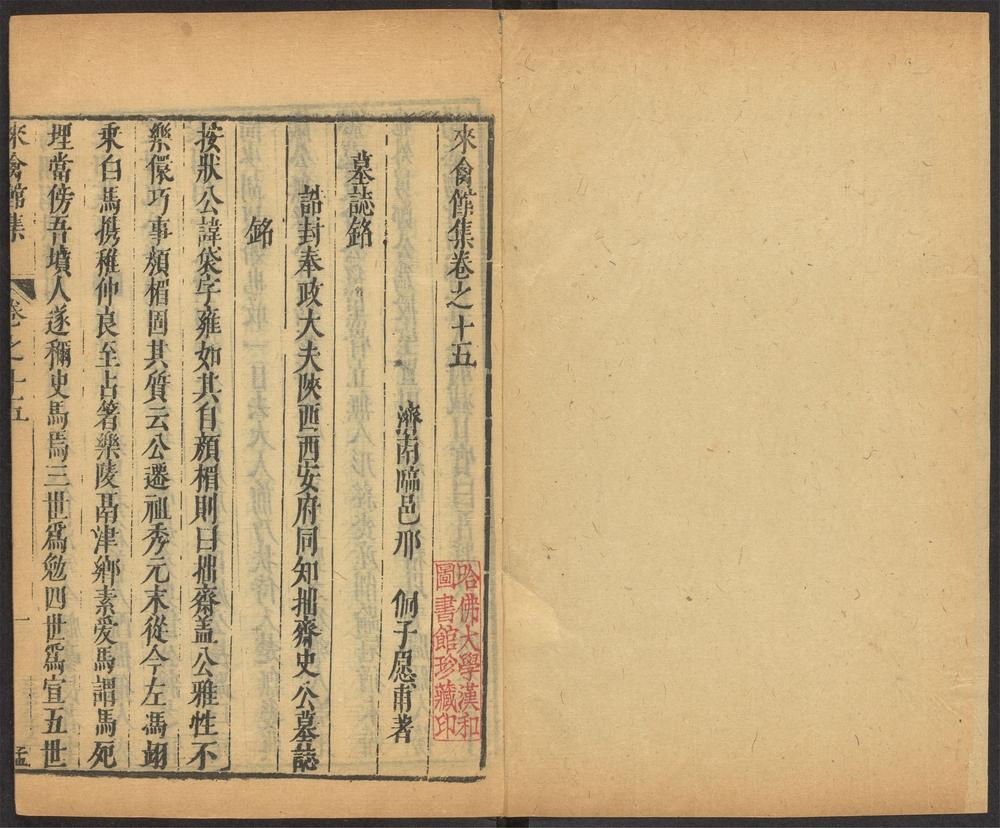 來禽館集卷之十五
濟南臨邑邢侗子愿甫著
墓誌銘
誥封奉政大夫陝西西安府同知拙齋史公墓誌
銘
按狀公諱袋字雍如其自顏楣則曰拙齋蓋公雅性不
樂儇巧事顏楣固其質云公遷祖秀元末從今左馮翊
乘白馬携稚仲良至占著樂陵鬲津鄉素爱馬謂馬死
埋當傍吾墳人遂稱史馬焉三世爲勉四世爲宣五世
來禽館集
卷之十五
一
孟
哈佛大學漢和
圖書館珍藏印